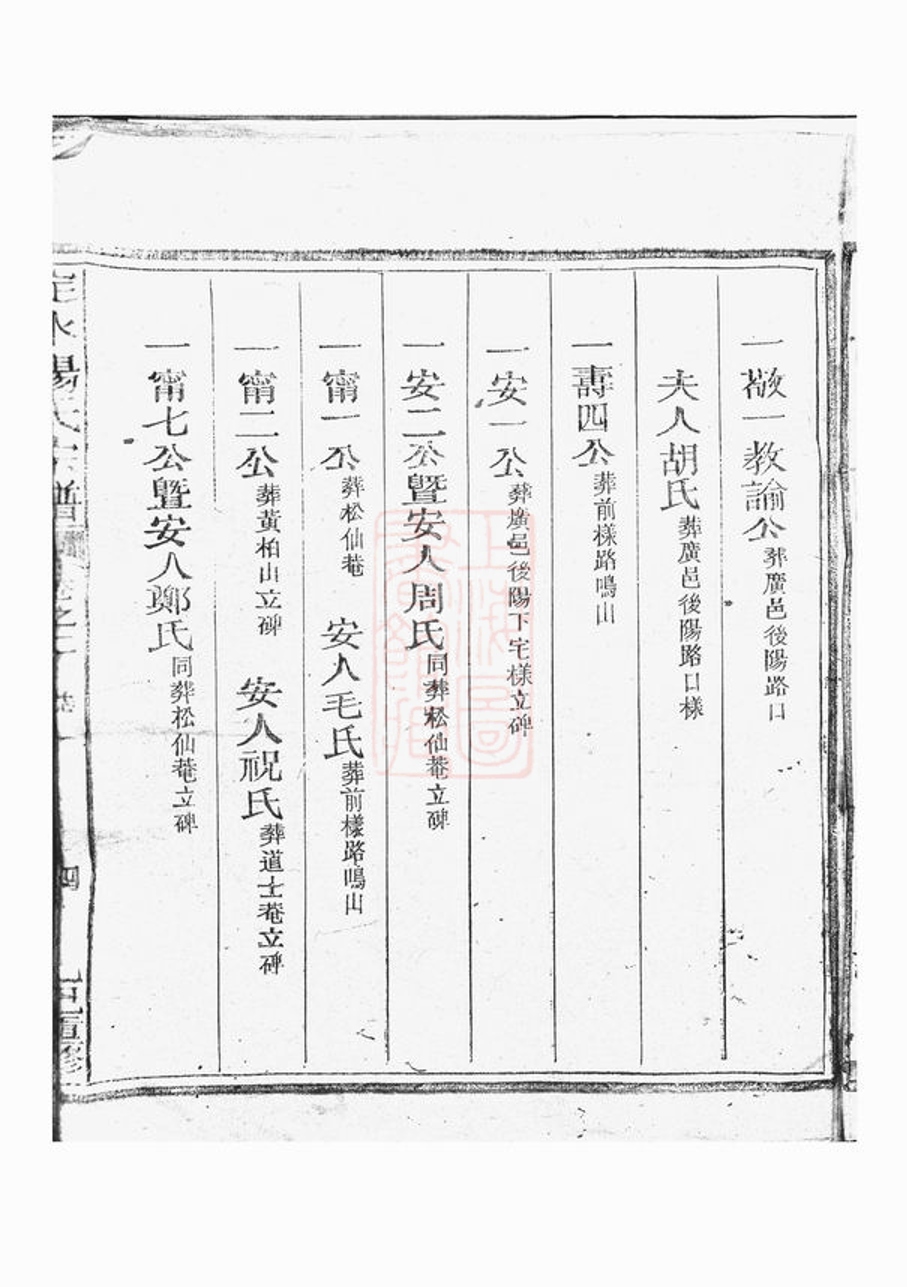 一敥一教諭公葬廣邑後陽路口
夫人胡氏葬廣邑後陽路口樣
一壽四公葬前樣路鳴山
一安一公葬廣邑後陽下宅樣立碑
一安二公暨安人周氏同葬松仙菴立碑
一甯一公葬松仙菴 安人毛氏葬前樣路鳴山
一甯二公葬黃柏山立碑 安人祝氏葬道士菴立碑
一甯七公暨安人鄭氏同葬松仙菴立碑
上海圖書館藏
四